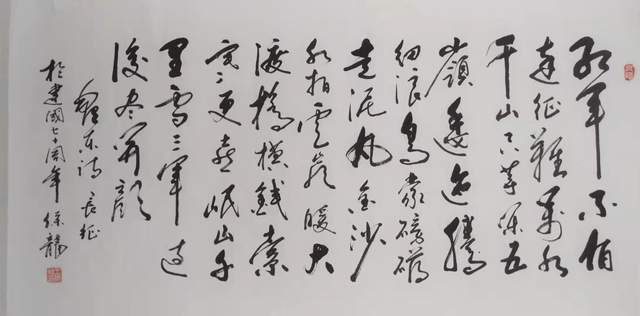 紅軍不怕
遠征難萬水
千山只等閒五
嶺逶迤騰
細浪烏蒙磅礴
走泥丸金沙
水拍雲崖暖大
渡橋橫鐵索
寒更喜岷山千
里雪三軍過
後盡開顏
毛澤东詩 長征
於建國七十周年 龍